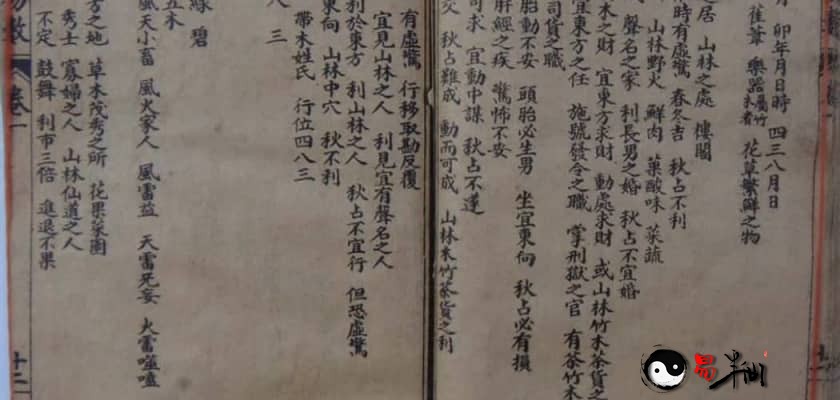 月 卯年月日時 四三八月日
萑葦 樂器屬竹木者 花草繁鮮之物
之居 山林之處 樓閣
時有虛驚 春冬吉 秋占不利
山林野火 鮮肉 菓酸味 菜蔬
聲名之家 利長男之婚 秋占不宜婚
木之財 宜東方求財 動處求財 或山林竹木茶貨之
宜東方之任 施號發令之職 掌刑獄之官 有茶竹木
司貨之職
胎動不安 頭胎必生男 坐宜東向 秋占必有損
肝經之疾 驚怖不安
可求 宜動中謀 秋占不遂
交 秋占難成 動而可成 山林木竹茶貨之利
有虛驚 行移取勘反覆
宜見山林之人 利見宜有聲名之人
利於東方 利山林之人 秋占不宜行 但恐虛驚
東向 山林中穴 秋不利
帶木姓氏 行位四八三
八 三
綠 碧
五木
風天小畜 風火家人 風雷益 天雷死妄 火雷噬嗑
方之地 草木茂秀之所 花果菜園
秀士 寡婦之人 山林仙道之人
不定 鼓舞 利市三倍 進退不果
數 卷一 十二
易半仙